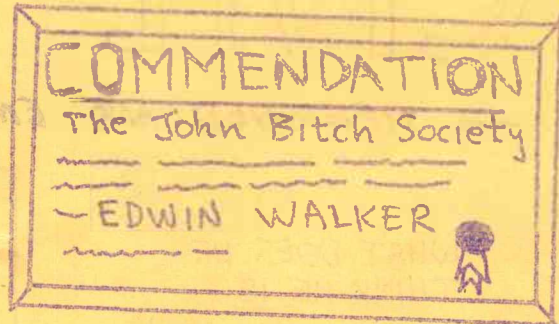 COMMENDATION
The John Bitch Society
EDWIN WALKER